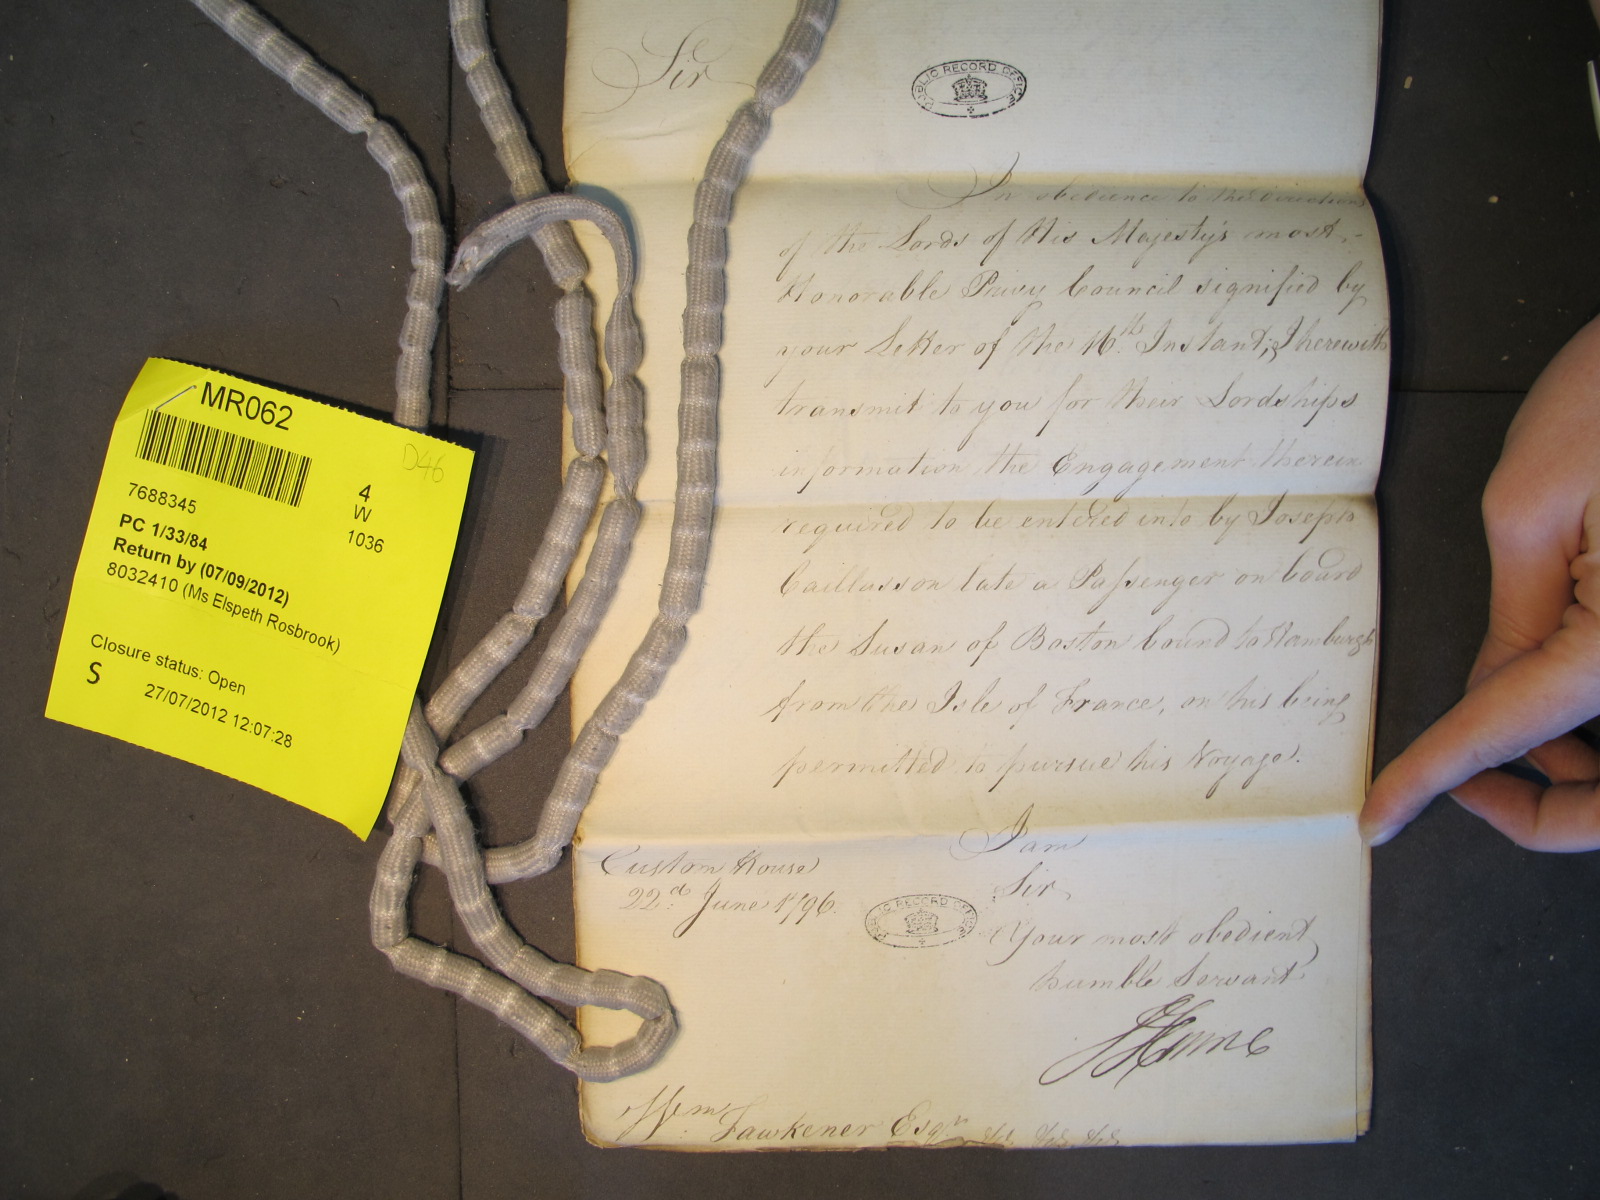 MR062
D46
7688345
4
W
1036
PC 1/33/84
Return by (07/09/2012)
8032410 (Ms Elspeth Rosbrook)
Closure status: Open
S
27/07/2012 12:07:28
Sir
PUBLIC RECORD OFFICE
In obedience to the directions
of the Lords of His Majesty's most
Honorable Privy Council signified by
your Letter of the 16th Instant, I herewith
transmit to you for their Lordships
information the Engagement therein
required to be entered into by Joseph
Caillasson late a Passenger on board
the Susan of Boston bound to Hamburgh
from the Isle of France, on his being
permitted to pursue his Voyage.
I am
Sir
Your most obedient
humble Servant
Custom House
22d June 1796.
PUBLIC RECORD OFFICE
JHume
Wm Fawkener Esqr &c &c &c